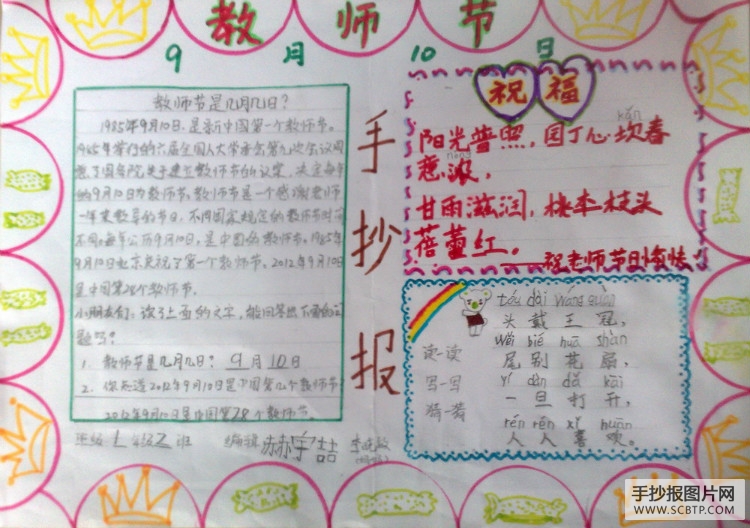 教师节
9月10日
教师节是几月几日?
1985年9月10日,是新中国第一个教师节。
1985年举行的六届全国人大常委会第九次会议同
意了国务院关于建立教师节的议案,决定每年
的9月10日为教师节。教师节是一个感谢老师
一年来教导的节日,不同国家规定的教师节时间
不同,每年公历9月10日,是中国的教师节。1985年
9月10日北京庆祝了第一个教师节。2012年9月10日
是中国第28个教师节。
小朋友们,读了上面的文字,
题吗?
1. 教师节是几月几日? 9月10日
2. 你知道2012年9月10日是中国第几个教师节
2012年9月10日是中国第28个教师节
班级 1年级2班 编辑 赫宇喆
手抄报
祝福
kǎn
阳光普照,园丁心坎春
nóng
意浓,
甘雨滋润,桃李枝头
蓓蕾红。
祝老师节日愉快
读一读
写一写
猜一猜
tóu dài wáng guān
头戴王冠,
wěi bié huā shàn
尾别花扇,
yí dàn dǎ kāi
一旦打开,
rén rén xǐ huān
人人喜欢。
手抄报图片网
WWW.SCBTP.COM